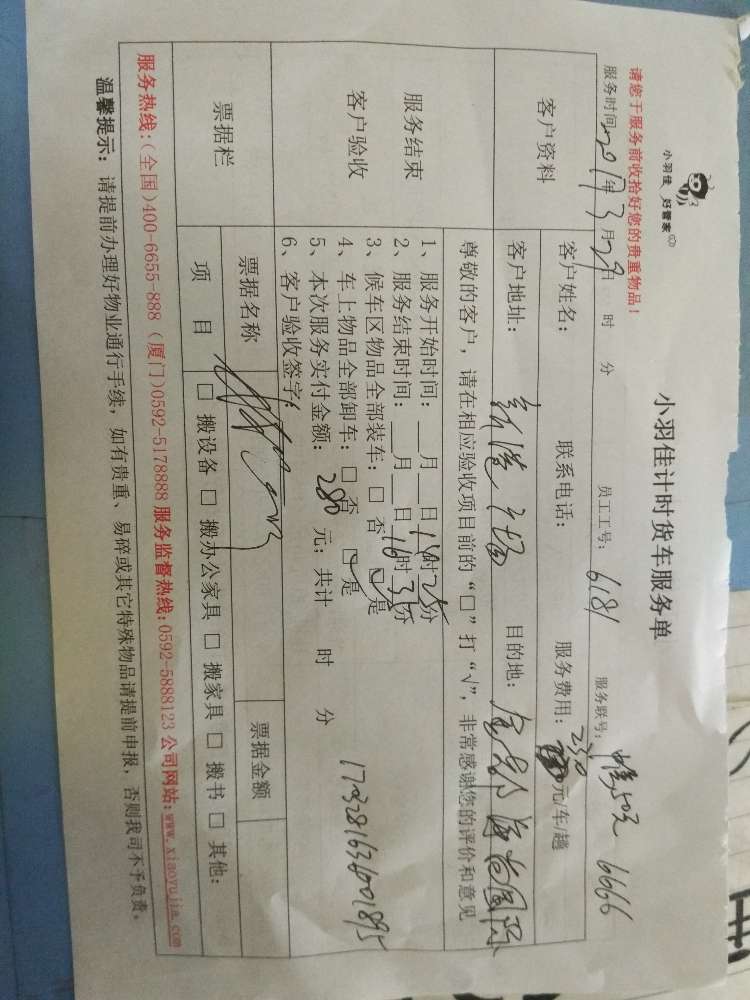 小羽佳 好管家
小羽佳计时货车服务单
请您于服务前收拾好您的贵重物品！
服务时间：2017年3月29日 时 分 员工工号：6181 服务联号： 6666
客户资料
客户姓名： 联系电话： 服务费用：230元/车/趟
客户地址： 目的地：
服务结束
客户验收
尊敬的客户，请在相应验收项目前的“□”打“√”，非常感谢您的评价和意见
1、服务开始时间：__月__日14时25分
2、服务结束时间：__月__日16时35分
3、候车区物品全部装车：□ 否 ☑ 是
4、车上物品全部卸车：□ 否 ☑ 是
5、本次服务实付金额：280元；共计 时 分
6、客户验收签字：
1703281636001895
票据栏
票据名称 票据金额
项 目 □ 搬设备 □ 搬办公家具 □ 搬家具 □ 搬书 □ 其他：
服务热线：(全国)400-6655-888 (厦门)0592-5178888 服务监督热线：0592-5888123 公司网站：www.xiaoyujia.com
温馨提示：请提前办理好物业通行手续，如有贵重、易碎或其它特殊物品请提前申报，否则我司不予负责。